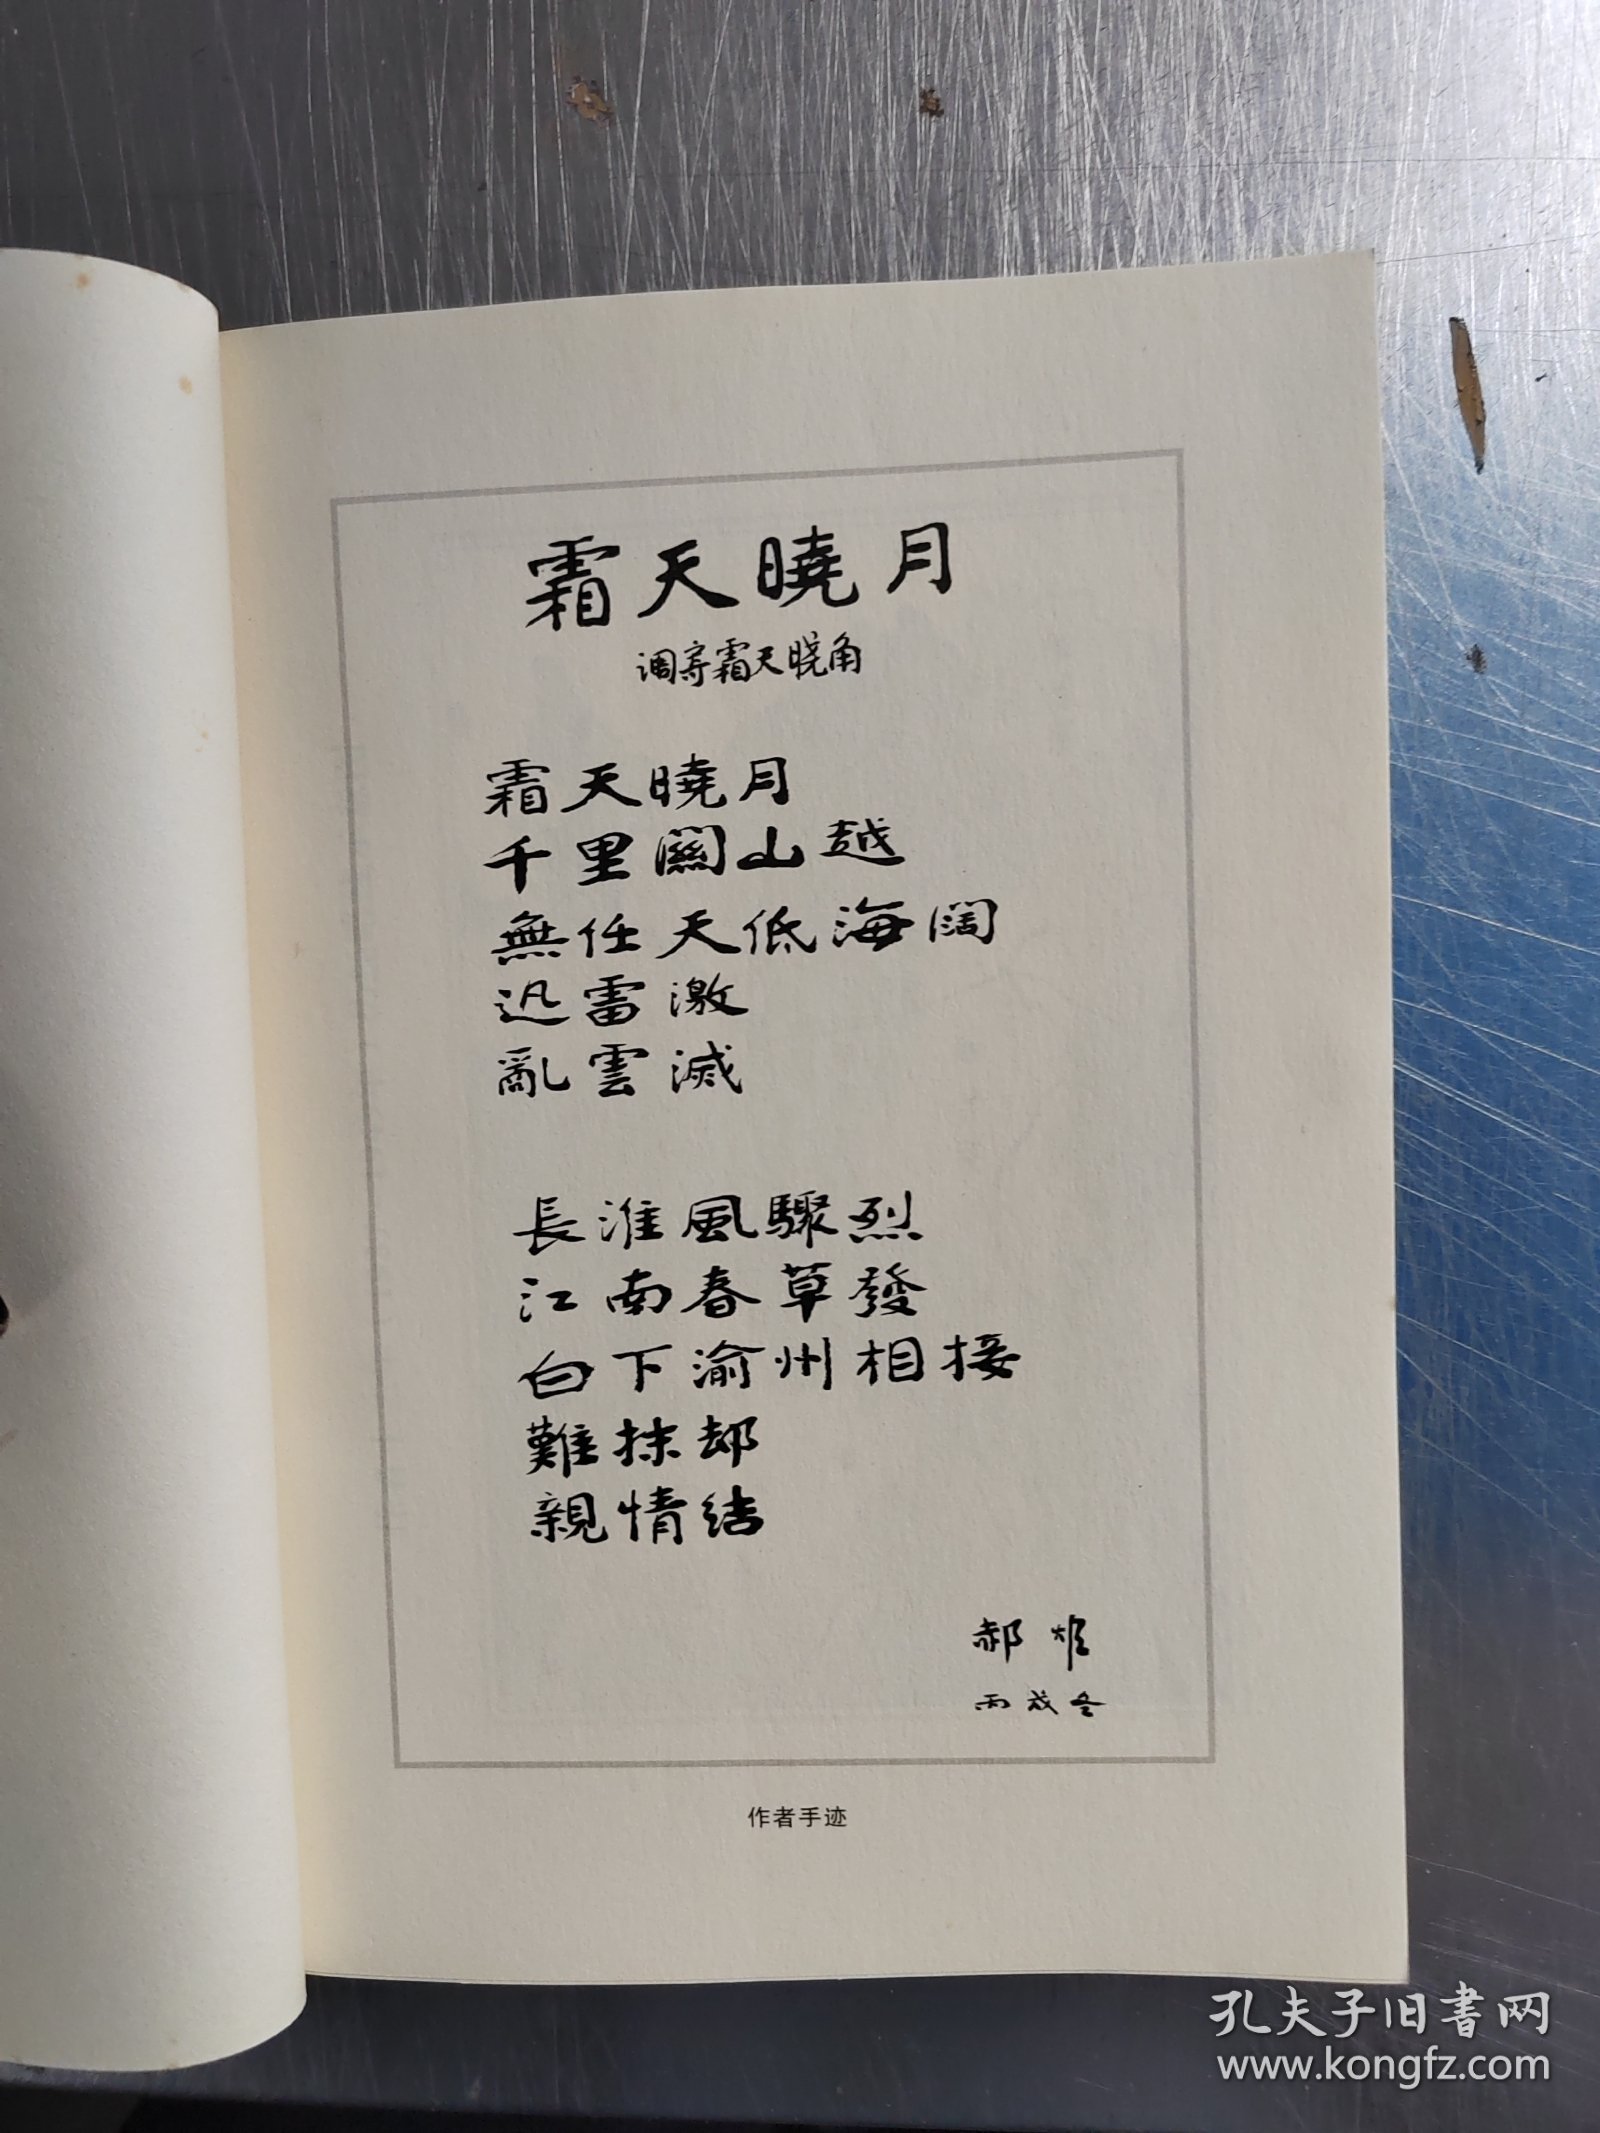 霜天曉月
调寄霜天晓角
霜天曉月
千里關山越
無任天低海闊
迅雷激
亂雲滅
長淮風驟烈
江南春草發
白下渝州相接
難抹却
親情結
郝雄
丙戌冬
作者手迹
孔夫子旧书网
www.kongfz.com